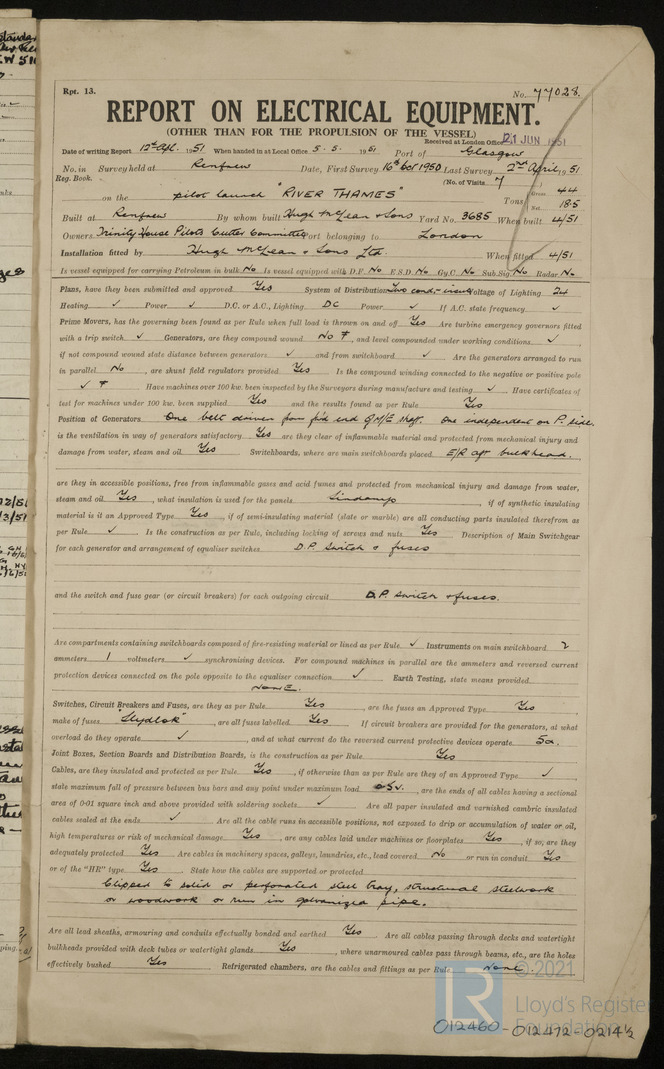 Rpt. 13.
No. 77028.
REPORT ON ELECTRICAL EQUIPMENT.
(OTHER THAN FOR THE PROPULSION OF THE VESSEL)
Received at London Office 21 JUN 1951
Date of writing Report 12th Apl. 1951 When handed in at Local Office 5.5. 1951 Port of Glasgow
No. in Survey held at Renfrew Date, First Survey 16th Oct 1950 Last Survey 2nd April, 1951
Reg. Book. (No. of Visits 7
on the pilot launch "RIVER THAMES" Tons Gross 44 Net 18.5
Built at Renfrew By whom built Hugh McLean & Sons Yard No. 3685 When built 4/51
Owners Trinity House Pilots Cutter Committee Port belonging to London
Installation fitted by Hugh McLean & Sons Ltd. When fitted 4/51
Is vessel equipped for carrying Petroleum in bulk No Is vessel equipped with D.F. No E.S.D. No Gy.C. No Sub.Sig. No Radar No
Plans, have they been submitted and approved Yes System of Distribution Two cond. insult Voltage of Lighting 24
Heating ✓ Power ✓ D.C. or A.C., Lighting DC Power ✓ If A.C. state frequency ✓
Prime Movers, has the governing been found as per Rule when full load is thrown on and off Yes Are turbine emergency governors fitted
with a trip switch ✓ Generators, are they compound wound No, and level compounded under working conditions ✓
if not compound wound state distance between generators ✓ and from switchboard ✓ Are the generators arranged to run
in parallel No, are shunt field regulators provided Yes Is the compound winding connected to the negative or positive pole
✓ Have machines over 100 kw. been inspected by the Surveyors during manufacture and testing ✓ Have certificates of
test for machines under 100 kw. been supplied Yes and the results found as per Rule Yes
Position of Generators One belt driven from fwd end of M/E shaft. One independent on P. side.
is the ventilation in way of generators satisfactory Yes are they clear of inflammable material and protected from mechanical injury and
damage from water, steam and oil Yes Switchboards, where are main switchboards placed E/R aft bulkhead.
are they in accessible positions, free from inflammable gases and acid fumes and protected from mechanical injury and damage from water,
steam and oil Yes, what insulation is used for the panels Sindanyo, if of synthetic insulating
material is it an Approved Type Yes, if of semi-insulating material (slate or marble) are all conducting parts insulated therefrom as
per Rule ✓ Is the construction as per Rule, including locking of screws and nuts Yes Description of Main Switchgear
for each generator and arrangement of equaliser switches D.P. Switch & fuses
and the switch and fuse gear (or circuit breakers) for each outgoing circuit D.P. Switch & fuses.
Are compartments containing switchboards composed of fire-resisting material or lined as per Rule ✓ Instruments on main switchboard 2
ammeters 1 voltmeters ✓ synchronising devices. For compound machines in parallel are the ammeters and reversed current
protection devices connected on the pole opposite to the equaliser connection ✓ Earth Testing, state means provided
NONE.
Switches, Circuit Breakers and Fuses, are they as per Rule Yes, are the fuses an Approved Type Yes
make of fuses "Slydlok", are all fuses labelled Yes If circuit breakers are provided for the generators, at what
overload do they operate ✓, and at what current do the reversed current protective devices operate 5a.
Joint Boxes, Section Boards and Distribution Boards, is the construction as per Rule Yes
Cables, are they insulated and protected as per Rule Yes, if otherwise than as per Rule are they of an Approved Type ✓
state maximum fall of pressure between bus bars and any point under maximum load .5v., are the ends of all cables having a sectional
area of 0·01 square inch and above provided with soldering sockets ✓ Are all paper insulated and varnished cambric insulated
cables sealed at the ends ✓ Are all the cable runs in accessible positions, not exposed to drip or accumulation of water or oil,
high temperatures or risk of mechanical damage Yes, are any cables laid under machines or floorplates Yes, if so, are they
adequately protected Yes Are cables in machinery spaces, galleys, laundries, etc., lead covered No or run in conduit Yes
or of the "HR" type Yes State how the cables are supported or protected
Clipped to solid or perforated steel tray, structural steelwork
or woodwork or run in galvanized pipe.
Are all lead sheaths, armouring and conduits effectually bonded and earthed Yes Are all cables passing through decks and watertight
bulkheads provided with deck tubes or watertight glands Yes, where unarmoured cables pass through beams, etc., are the holes
effectively bushed Yes Refrigerated chambers, are the cables and fittings as per Rule None
© 2021
Lloyd's Register
Foundation
012460-012472-0214½